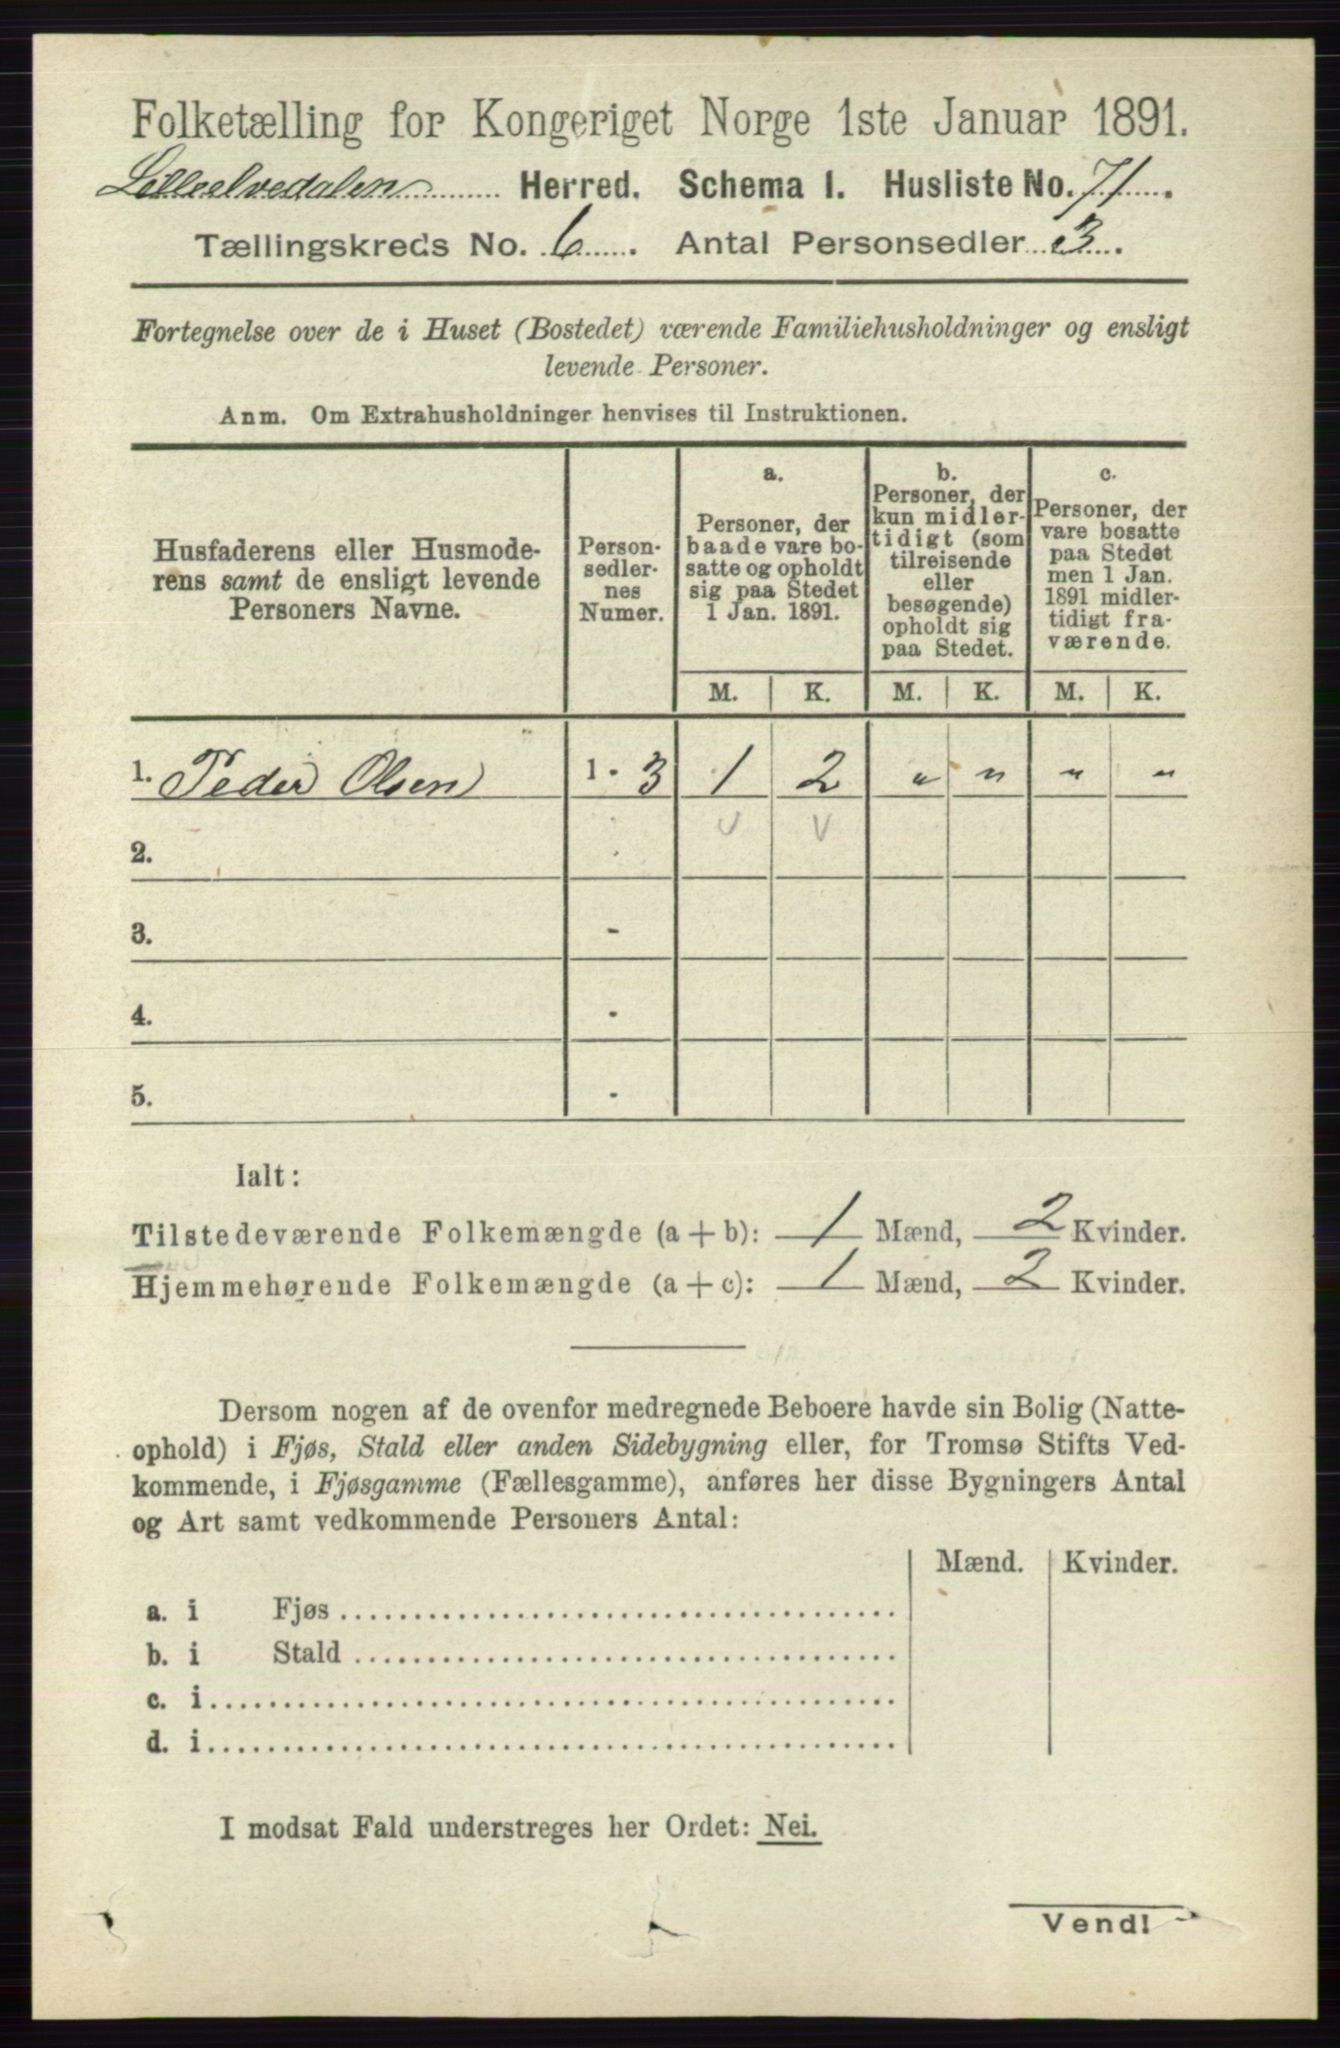 Folketælling for Kongeriget Norge 1ste Januar 1891.
Lilleelvedalen Herred. Schema 1. Husliste No. 71.
Tællingskreds No. 6. Antal Personsedler 3.
Fortegnelse over de i Huset (Bostedet) værende Familiehusholdninger og ensligt
levende Personer.
Anm. Om Extrahusholdninger henvises til Instruktionen.
Husfaderens eller Husmode-
rens samt de ensligt levende
Personers Navne.
Person-
sedler-
nes
Numer.
a.
Personer, der
baade vare bo-
satte og opholdt
sig paa Stedet
1 Jan. 1891.
b.
Personer, der
kun midler-
tidigt (som
tilreisende
eller
besøgende)
opholdt sig
paa Stedet.
c.
Personer, der
vare bosatte
paa Stedet
men 1 Jan.
1891 midler-
tidigt fra-
værende.
M. K. M. K. M. K.
1. Peder Olsen 1 - 3 1 2 " " " "
2. -
3. -
4. -
5. -
Ialt:
Tilstedeværende Folkemængde (a + b): 1 Mænd, 2 Kvinder.
Hjemmehørende Folkemængde (a + c): 1 Mænd, 2 Kvinder.
Dersom nogen af de ovenfor medregnede Beboere havde sin Bolig (Natte-
ophold) i Fjøs, Stald eller anden Sidebygning eller, for Tromsø Stifts Ved-
kommende, i Fjøsgamme (Fællesgamme), anføres her disse Bygningers Antal
og Art samt vedkommende Personers Antal:
Mænd. Kvinder.
a. i Fjøs
b. i Stald
c. i
d. i
I modsat Fald understreges her Ordet: Nei.
Vend!